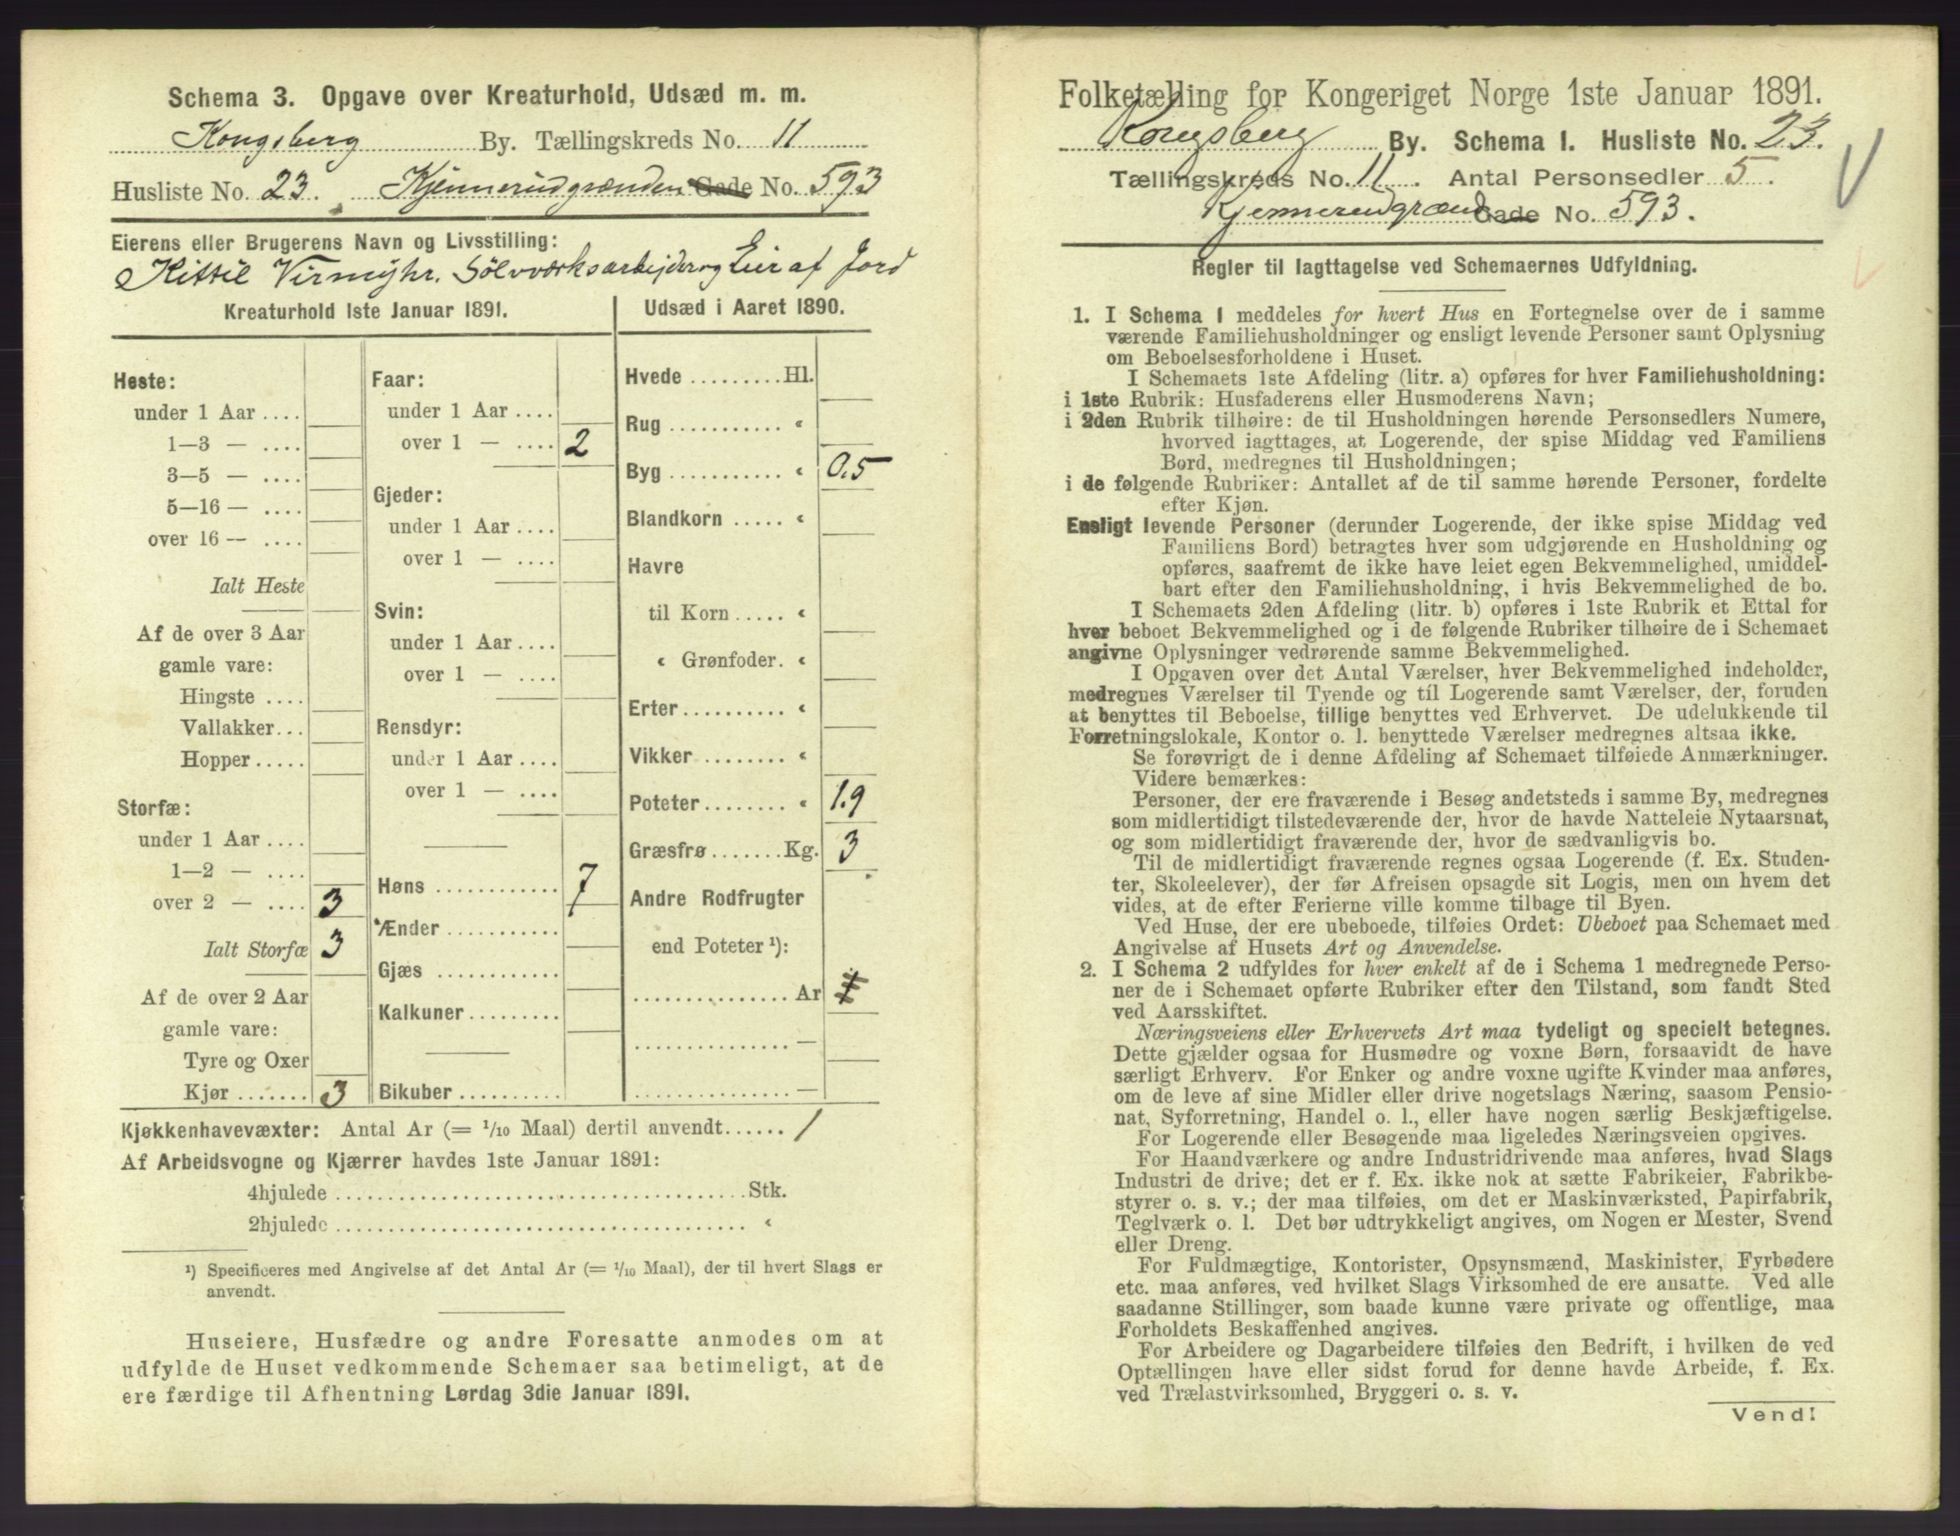 Schema 3. Opgave over Kreaturhold, Udsæd m. m.
Kongsberg By. Tællingskreds No. 11
Husliste No. 23. Kjennerudgrænden Gade No. 593
Eierens eller Brugerens Navn og Livsstilling:
Kittil Virmyhr. Sölvværksarbejder og Eier af Jord
Kreaturhold 1ste Januar 1891.
Heste:
under 1 Aar ....
1—3 — ....
3—5 — ....
5—16 — ....
over 16 — ....
Ialt Heste
Af de over 3 Aar
gamle vare:
Hingste ....
Vallakker...
Hopper.....
Storfæ:
under 1 Aar ....
1—2 — ....
over 2 — .... 3
Ialt Storfæ 3
Af de over 2 Aar
gamle vare:
Tyre og Oxer
Kjør ....... 3
Faar:
under 1 Aar ....
over 1 — .... 2
Gjeder:
under 1 Aar ....
over 1 — ....
Svin:
under 1 Aar ....
over 1 — ....
Rensdyr:
under 1 Aar ....
over 1 — ....
Høns ............ 7
Ænder ...........
Gjæs ............
Kalkuner.........
Bikuber ..........
Udsæd i Aaret 1890.
Hvede .........Hl.
Rug ........... «
Byg ........... « 0.5
Blandkorn ..... «
Havre
til Korn ..... «
« Grønfoder. «
Erter.......... «
Vikker ........ «
Poteter........ « 1.9
Græsfrø.......Kg. 3
Andre Rodfrugter
end Poteter ¹):
................ Ar
................ —
................ —
Kjøkkenhavevæxter: Antal Ar (= 1/10 Maal) dertil anvendt...... 1
Af Arbeidsvogne og Kjærrer havdes 1ste Januar 1891:
4hjulede ........................................Stk.
2hjulede ........................................ «
¹) Specificeres med Angivelse af det Antal Ar (= 1/10 Maal), der til hvert Slags er
anvendt.
Huseiere, Husfædre og andre Foresatte anmodes om at
udfylde de Huset vedkommende Schemaer saa betimeligt, at de
ere færdige til Afhentning Lørdag 3die Januar 1891.
Folketælling for Kongeriget Norge 1ste Januar 1891.
Kongsberg By. Schema 1. Husliste No. 23.
Tællingskreds No. 11. Antal Personsedler 5.
Kjennerudgrænd Gade No. 593.
Regler til Iagttagelse ved Schemaernes Udfyldning.
1. I Schema 1 meddeles for hvert Hus en Fortegnelse over de i samme
værende Familiehusholdninger og ensligt levende Personer samt Oplysning
om Beboelsesforholdene i Huset.
I Schemaets 1ste Afdeling (litr. a) opføres for hver Familiehusholdning:
i 1ste Rubrik: Husfaderens eller Husmoderens Navn;
i 2den Rubrik tilhøire: de til Husholdningen hørende Personsedlers Numere,
hvorved iagttages, at Logerende, der spise Middag ved Familiens
Bord, medregnes til Husholdningen;
i de følgende Rubriker: Antallet af de til samme hørende Personer, fordelte
efter Kjøn.
Ensligt levende Personer (derunder Logerende, der ikke spise Middag ved
Familiens Bord) betragtes hver som udgjørende en Husholdning og
opføres, saafremt de ikke have leiet egen Bekvemmelighed, umiddel-
bart efter den Familiehusholdning, i hvis Bekvemmelighed de bo.
I Schemaets 2den Afdeling (litr. b) opføres i 1ste Rubrik et Ettal for
hver beboet Bekvemmelighed og i de følgende Rubriker tilhøire de i Schemaet
angivne Oplysninger vedrørende samme Bekvemmelighed.
I Opgaven over det Antal Værelser, hver Bekvemmelighed indeholder,
medregnes Værelser til Tyende og til Logerende samt Værelser, der, foruden
at benyttes til Beboelse, tillige benyttes ved Erhvervet. De udelukkende til
Forretningslokale, Kontor o. l. benyttede Værelser medregnes altsaa ikke.
Se forøvrigt de i denne Afdeling af Schemaet tilføiede Anmærkninger.
Videre bemærkes:
Personer, der ere fraværende i Besøg andetsteds i samme By, medregnes
som midlertidigt tilstedeværende der, hvor de havde Natteleie Nytaarsnat,
og som midlertidigt fraværende der, hvor de sædvanligvis bo.
Til de midlertidigt fraværende regnes ogsaa Logerende (f. Ex. Studen-
ter, Skoleelever), der før Afreisen opsagde sit Logis, men om hvem det
vides, at de efter Ferierne ville komme tilbage til Byen.
Ved Huse, der ere ubeboede, tilføies Ordet: Ubeboet paa Schemaet med
Angivelse af Husets Art og Anvendelse.
2. I Schema 2 udfyldes for hver enkelt af de i Schema 1 medregnede Perso-
ner de i Schemaet opførte Rubriker efter den Tilstand, som fandt Sted
ved Aarsskiftet.
Næringsveiens eller Erhvervets Art maa tydeligt og specielt betegnes.
Dette gjælder ogsaa for Husmødre og voxne Børn, forsaavidt de have
særligt Erhverv. For Enker og andre voxne ugifte Kvinder maa anføres,
om de leve af sine Midler eller drive nogetslags Næring, saasom Pensio-
nat, Syforretning, Handel o. l., eller have nogen særlig Beskjæftigelse.
For Logerende eller Besøgende maa ligeledes Næringsveien opgives.
For Haandværkere og andre Industridrivende maa anføres, hvad Slags
Industri de drive; det er f. Ex. ikke nok at sætte Fabrikeier, Fabrikbe-
styrer o. s. v.; der maa tilføies, om det er Maskinværksted, Papirfabrik,
Teglværk o. l. Det bør udtrykkeligt angives, om Nogen er Mester, Svend
eller Dreng.
For Fuldmægtige, Kontorister, Opsynsmænd, Maskinister, Fyrbødere
etc. maa anføres, ved hvilket Slags Virksomhed de ere ansatte. Ved alle
saadanne Stillinger, som baade kunne være private og offentlige, maa
Forholdets Beskaffenhed angives.
For Arbeidere og Dagarbeidere tilføies den Bedrift, i hvilken de ved
Optællingen have eller sidst forud for denne havde Arbeide, f. Ex.
ved Trælastvirksomhed, Bryggeri o. s. v.
Vend!